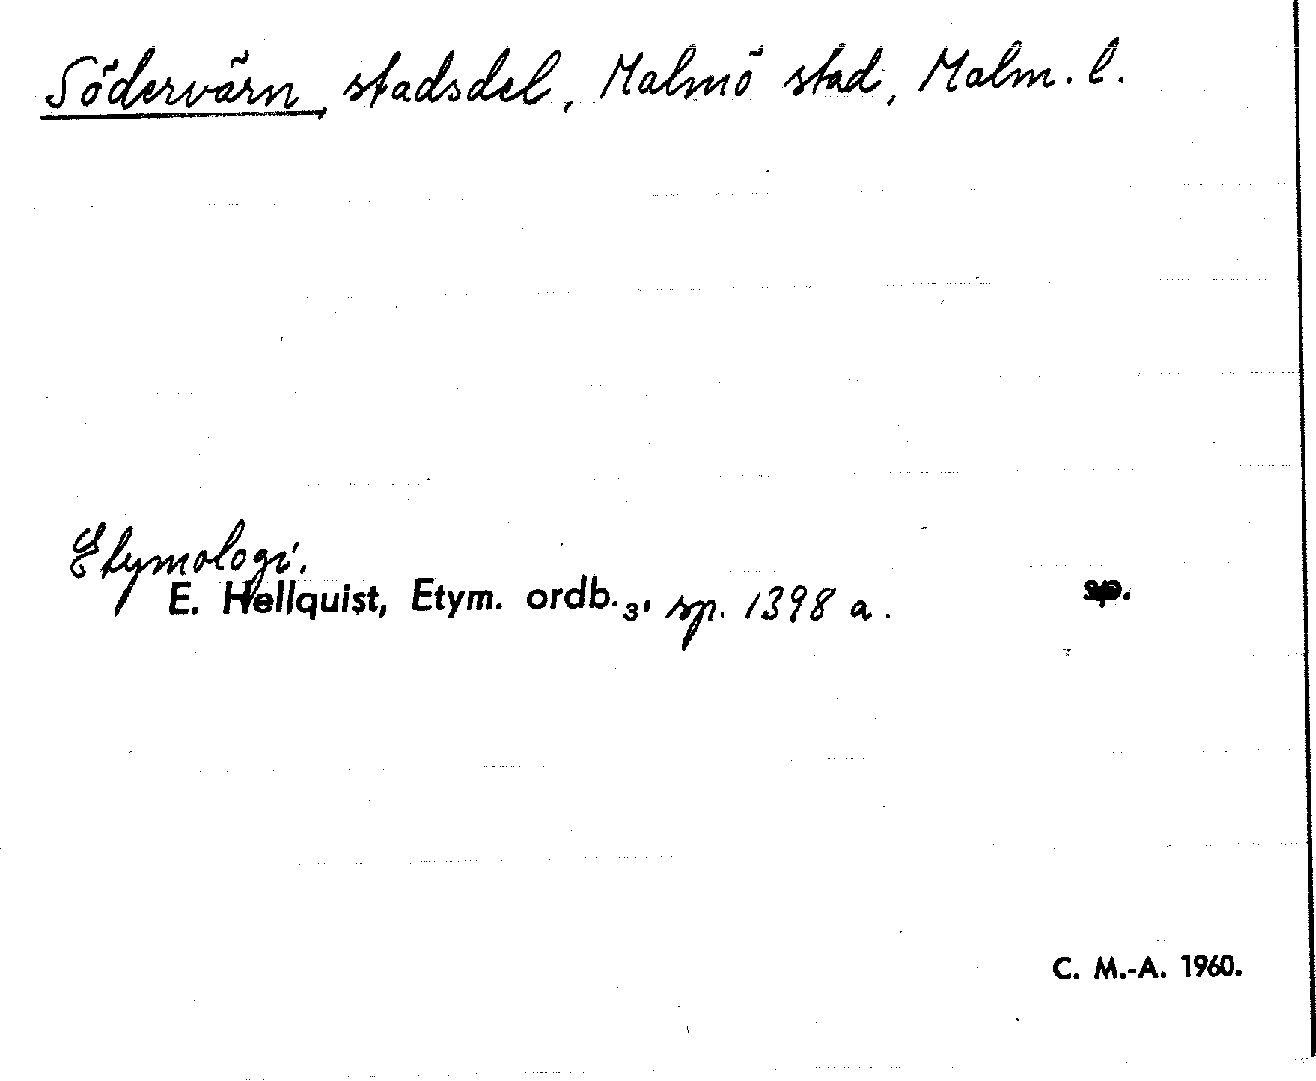 Södervärn, stadsdel, Malmö stad, Malm. l.
Etymologi.
E. Hellquist, Etym. ordb.₃, sp. 1398 a. sp.
C. M.-A. 1960.